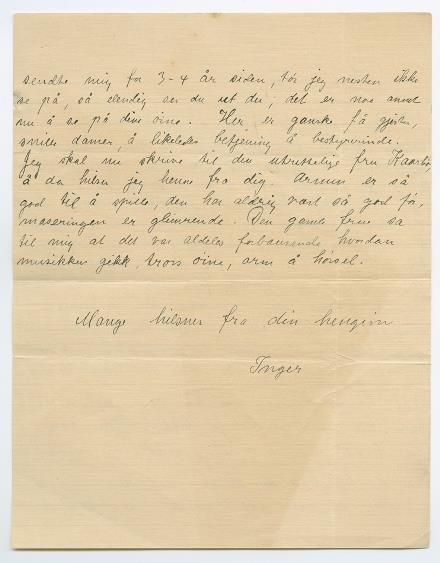 sendte mig for 3-4 år siden, tør jeg nesten ikke
se på, så elendig ser du ut der, det er noe med
nu å se på dine øine. Her er ganske få gjester,
snille damer, å likeledes betjening å bestyrerinde.
Jeg skal nu skrive til den utrettelige fru Kaarbø,
å da hilser jeg henne fra dig. Armen er så
god til å spille, den har aldrig vært så god før,
maseringen er glimrende. Den gamle frue sa
til mig at det var aldeles forbausende, hvordan
musikken gikk, trots øine, arm å hørsel.
Mange hilsner fra din hengivne
Inger